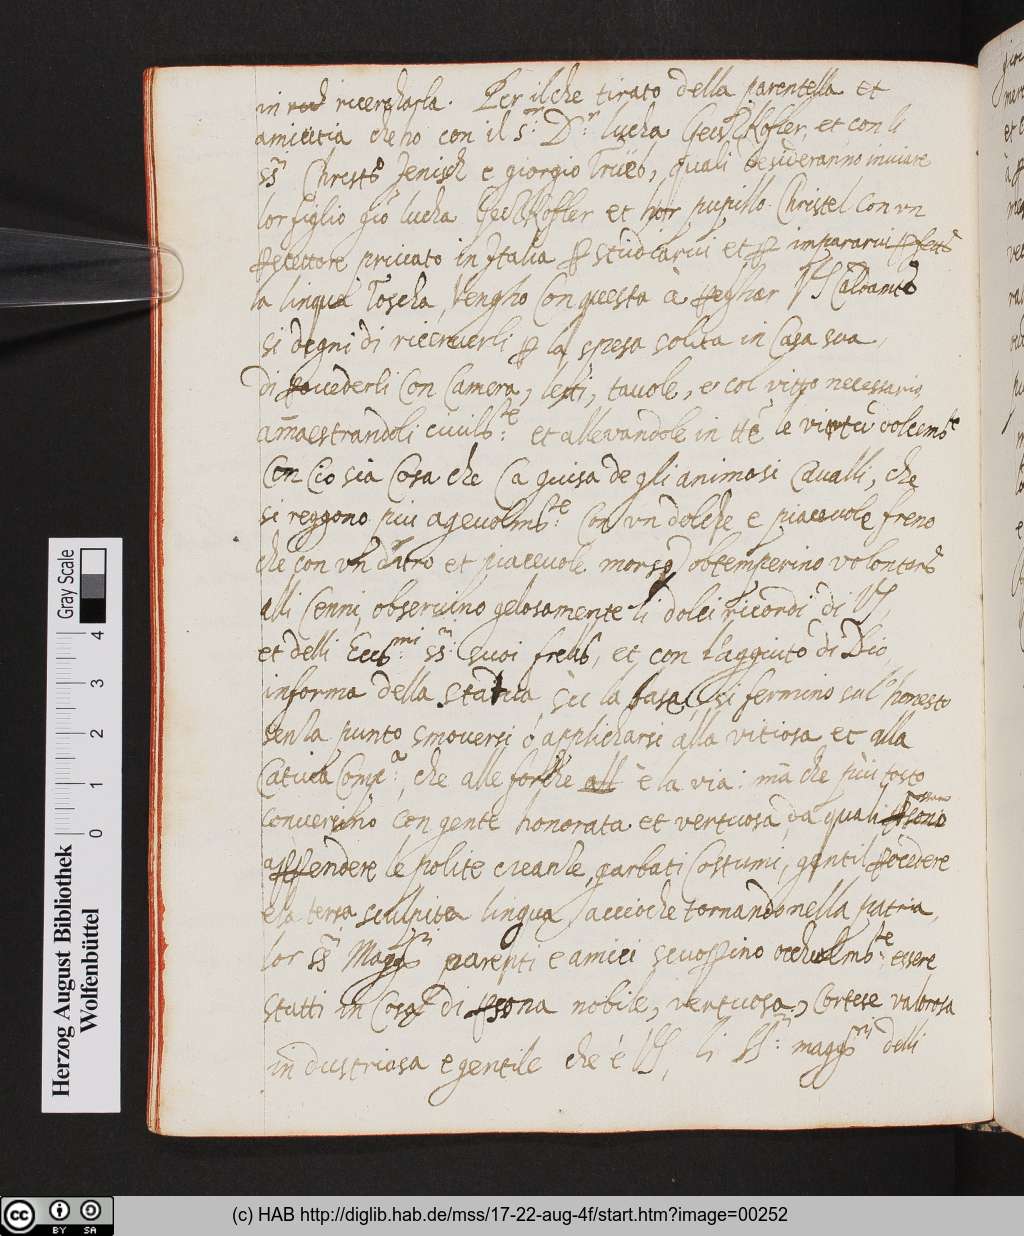 in ricercharla. Per ilche tirato della parentella et
amicitia che ho con il Sr: Dr: lucha Geitzkofler, et con li
SSri Christo Jenisch e giorgio Trüeb, quali desideranno inviare
lor figlio gio lucha Geitzkofler et lor pupillo Christel con un
precettore privato in Italia p studiarui et p impararui pfetto
la lingua Toscha, Vengho con questa à preghar VS Caldamte
si degni di riceverli p la spesa solita in Casa sua,
di provederli con Camera, letti, tavole, e col vitto necessario
amaestrandoli civilmte: et allevandole in le virtù dolcemte
Con Cio sia Cosa che a guisa degli animosi Cavalli, che
si reggono piu agevolmte: Con un dolche e piacevole freno
che con un altro et piacevole morso obtemperino volontaro
alli Cenni, observino gelosamente li dolci ricordi di VS,
et delli Eccmi: SSri: suoi frelli, et con l'aggiuto di Dio,
in forma della statua su la basa, si fermino sul honesto
senza punto smoversi ò applicharsi alla vitiosa et alla
Cativa Compa:, che alle forche all è la via: mà che più tosto
conversino con gente honorata et vertuosa, da quali possano
apprendere le polite creanze, garbati Costumi, gentil procedere
e la tersa sculpita lingua, accioche tornando nella patria,
lor SSri Maggri parenti e amici scuoprino occhulmte: essere
statti in Casa di psona nobile, vertuosa, Cortese valorosa
industriosa e gentile che è VS, li SSri: maggri delli
Herzog August Bibliothek
Wolfenbüttel
Gray Scale
0 1 2 3 4
cc BY SA
(c) HAB http://diglib.hab.de/mss/17-22-aug-4f/start.htm?image=00252